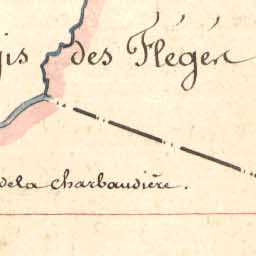 gis des Flégér
de la Charbaudière.